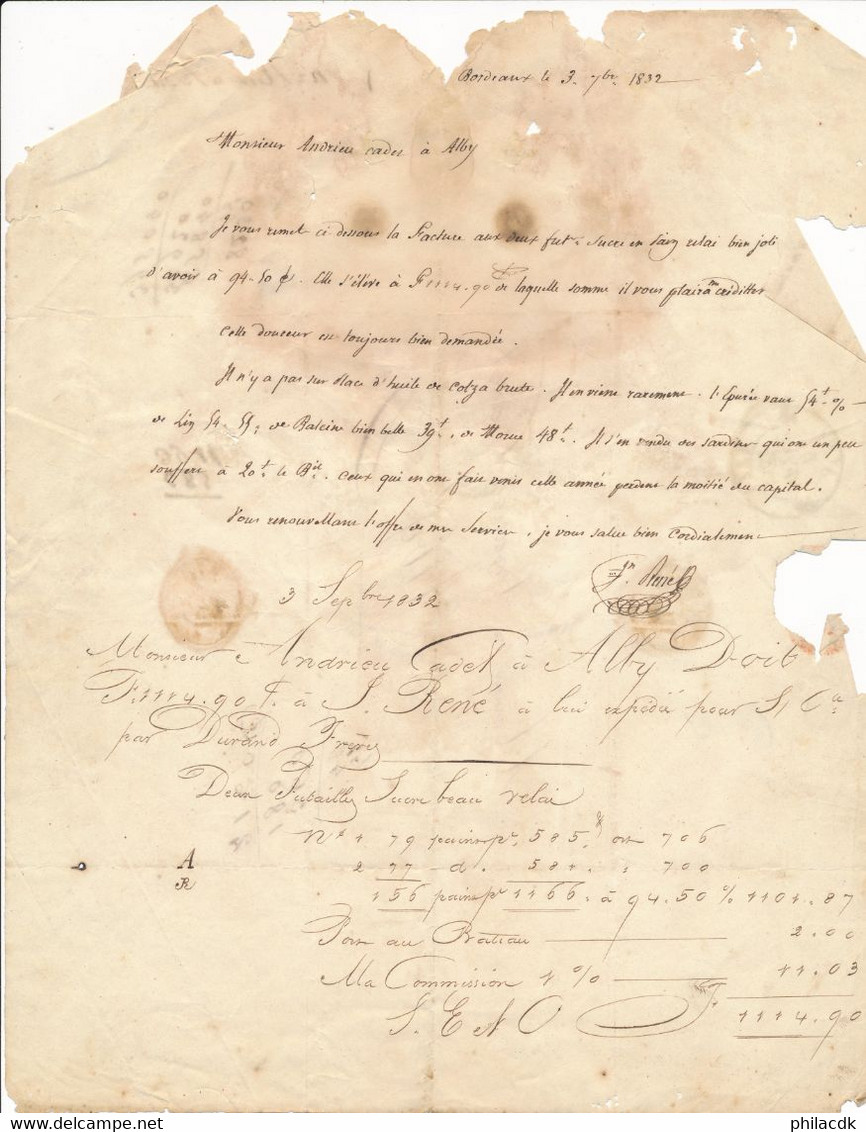 Bordeaux le 3. 7bre 1832
Monsieur Andrieu cadet à Alby
Je vous remet ci dessous la Facture aux deux futs. Sucre en pain relai bien joli
d'avoir à 94-50 c. Elle s'élève à F 1114.90 de laquelle somme il vous plaira m'en créditter
Cette douceur est toujours bien demandée.
Il n'y a pas sur place d'huile de Colza brute. Il en vient rarement. l'Epurée vaut 54t %
de Lin 54-55, de Baleine bien belle 39t, de Morue 48t. Il s'en vendu des sardines qui ont un peu
souffert à 20t le Bil. Ceux qui en ont fait venir cette année perdent la moitié du capital.
Vous renouvellant l'offre de mes Services, je vous salue bien Cordialement
Jn. René
3 Sepbre 1832
Monsieur Andrieu Cadet à Alby Doit
F. 1114.90 c. à J. René à lui expédié pour S/ Cte
par Durand Frères
Deux Futailles Sucre beau relai
No 1 79 pains pt. 585. ort 706
A 2 77 - d. 581. " 700
R
156 pains pt 1166. à 94.50 % 1101.87
Port au Bateau 2.00
Ma Commission 1 % 11.03
S. E & O F. 1114.90
philacdk